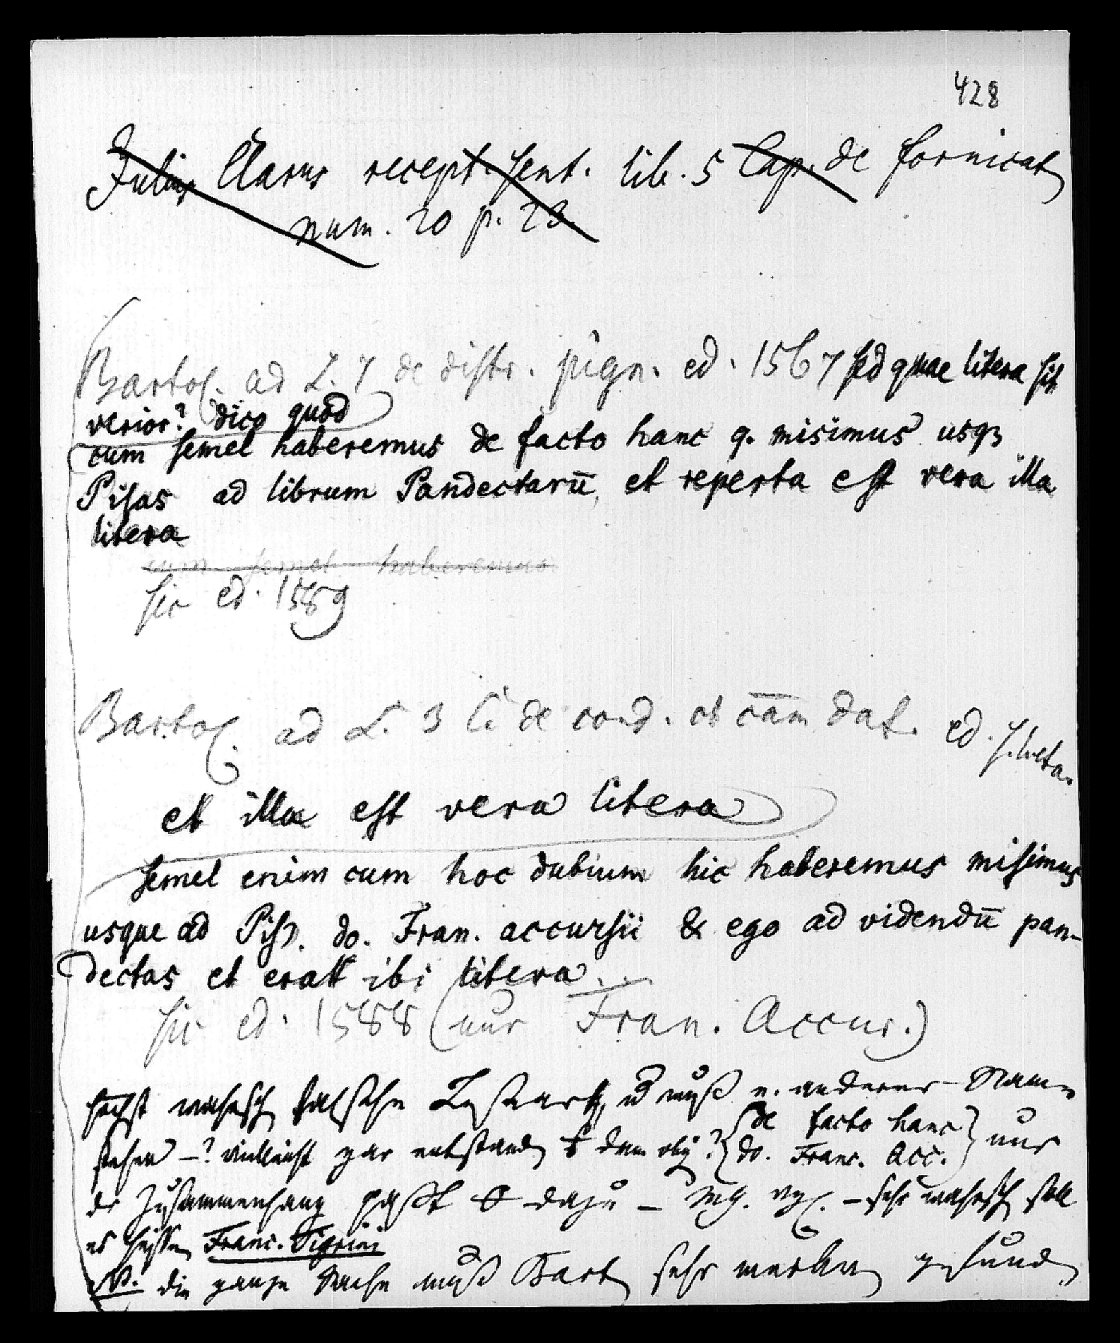 428
Julius Clarus recept. sent. lib. 5 Cap. de fornicat
num. 20 p. 23
Bartol. ad L. 7 de distr. pign. ed. 1567 sed quae litera sit
verior? dico quod
cum semel haberemus de facto hanc q. misimus usq3
Pisas ad librum Pandectarū, et reperta est vera illa
litera
cum semel haberemus
sic ed. 1589
Bartol. ad L. 3 C. de cond. ob cām dat. ed. s.
et illa est vera litera
semel enim cum hoc dubium hic haberemus misimus
usque ad Pis. do. Fran. accursii & ego ad videndū pan-
dectas et erat ibi litera.
sic ed. 1588 (nur Fran. Accur.)
höchst falsche Lesart, muß e. anderer Name
stehen –? vielleicht gar entstand dem obig.? {de facto hanc} {do. Franc. Acc.} nur
der Zusammenhang paßt dazu – – sehr soll
es heißen Franc. Tigrini
NB. die ganze Sache muß Bart sehr gefunden